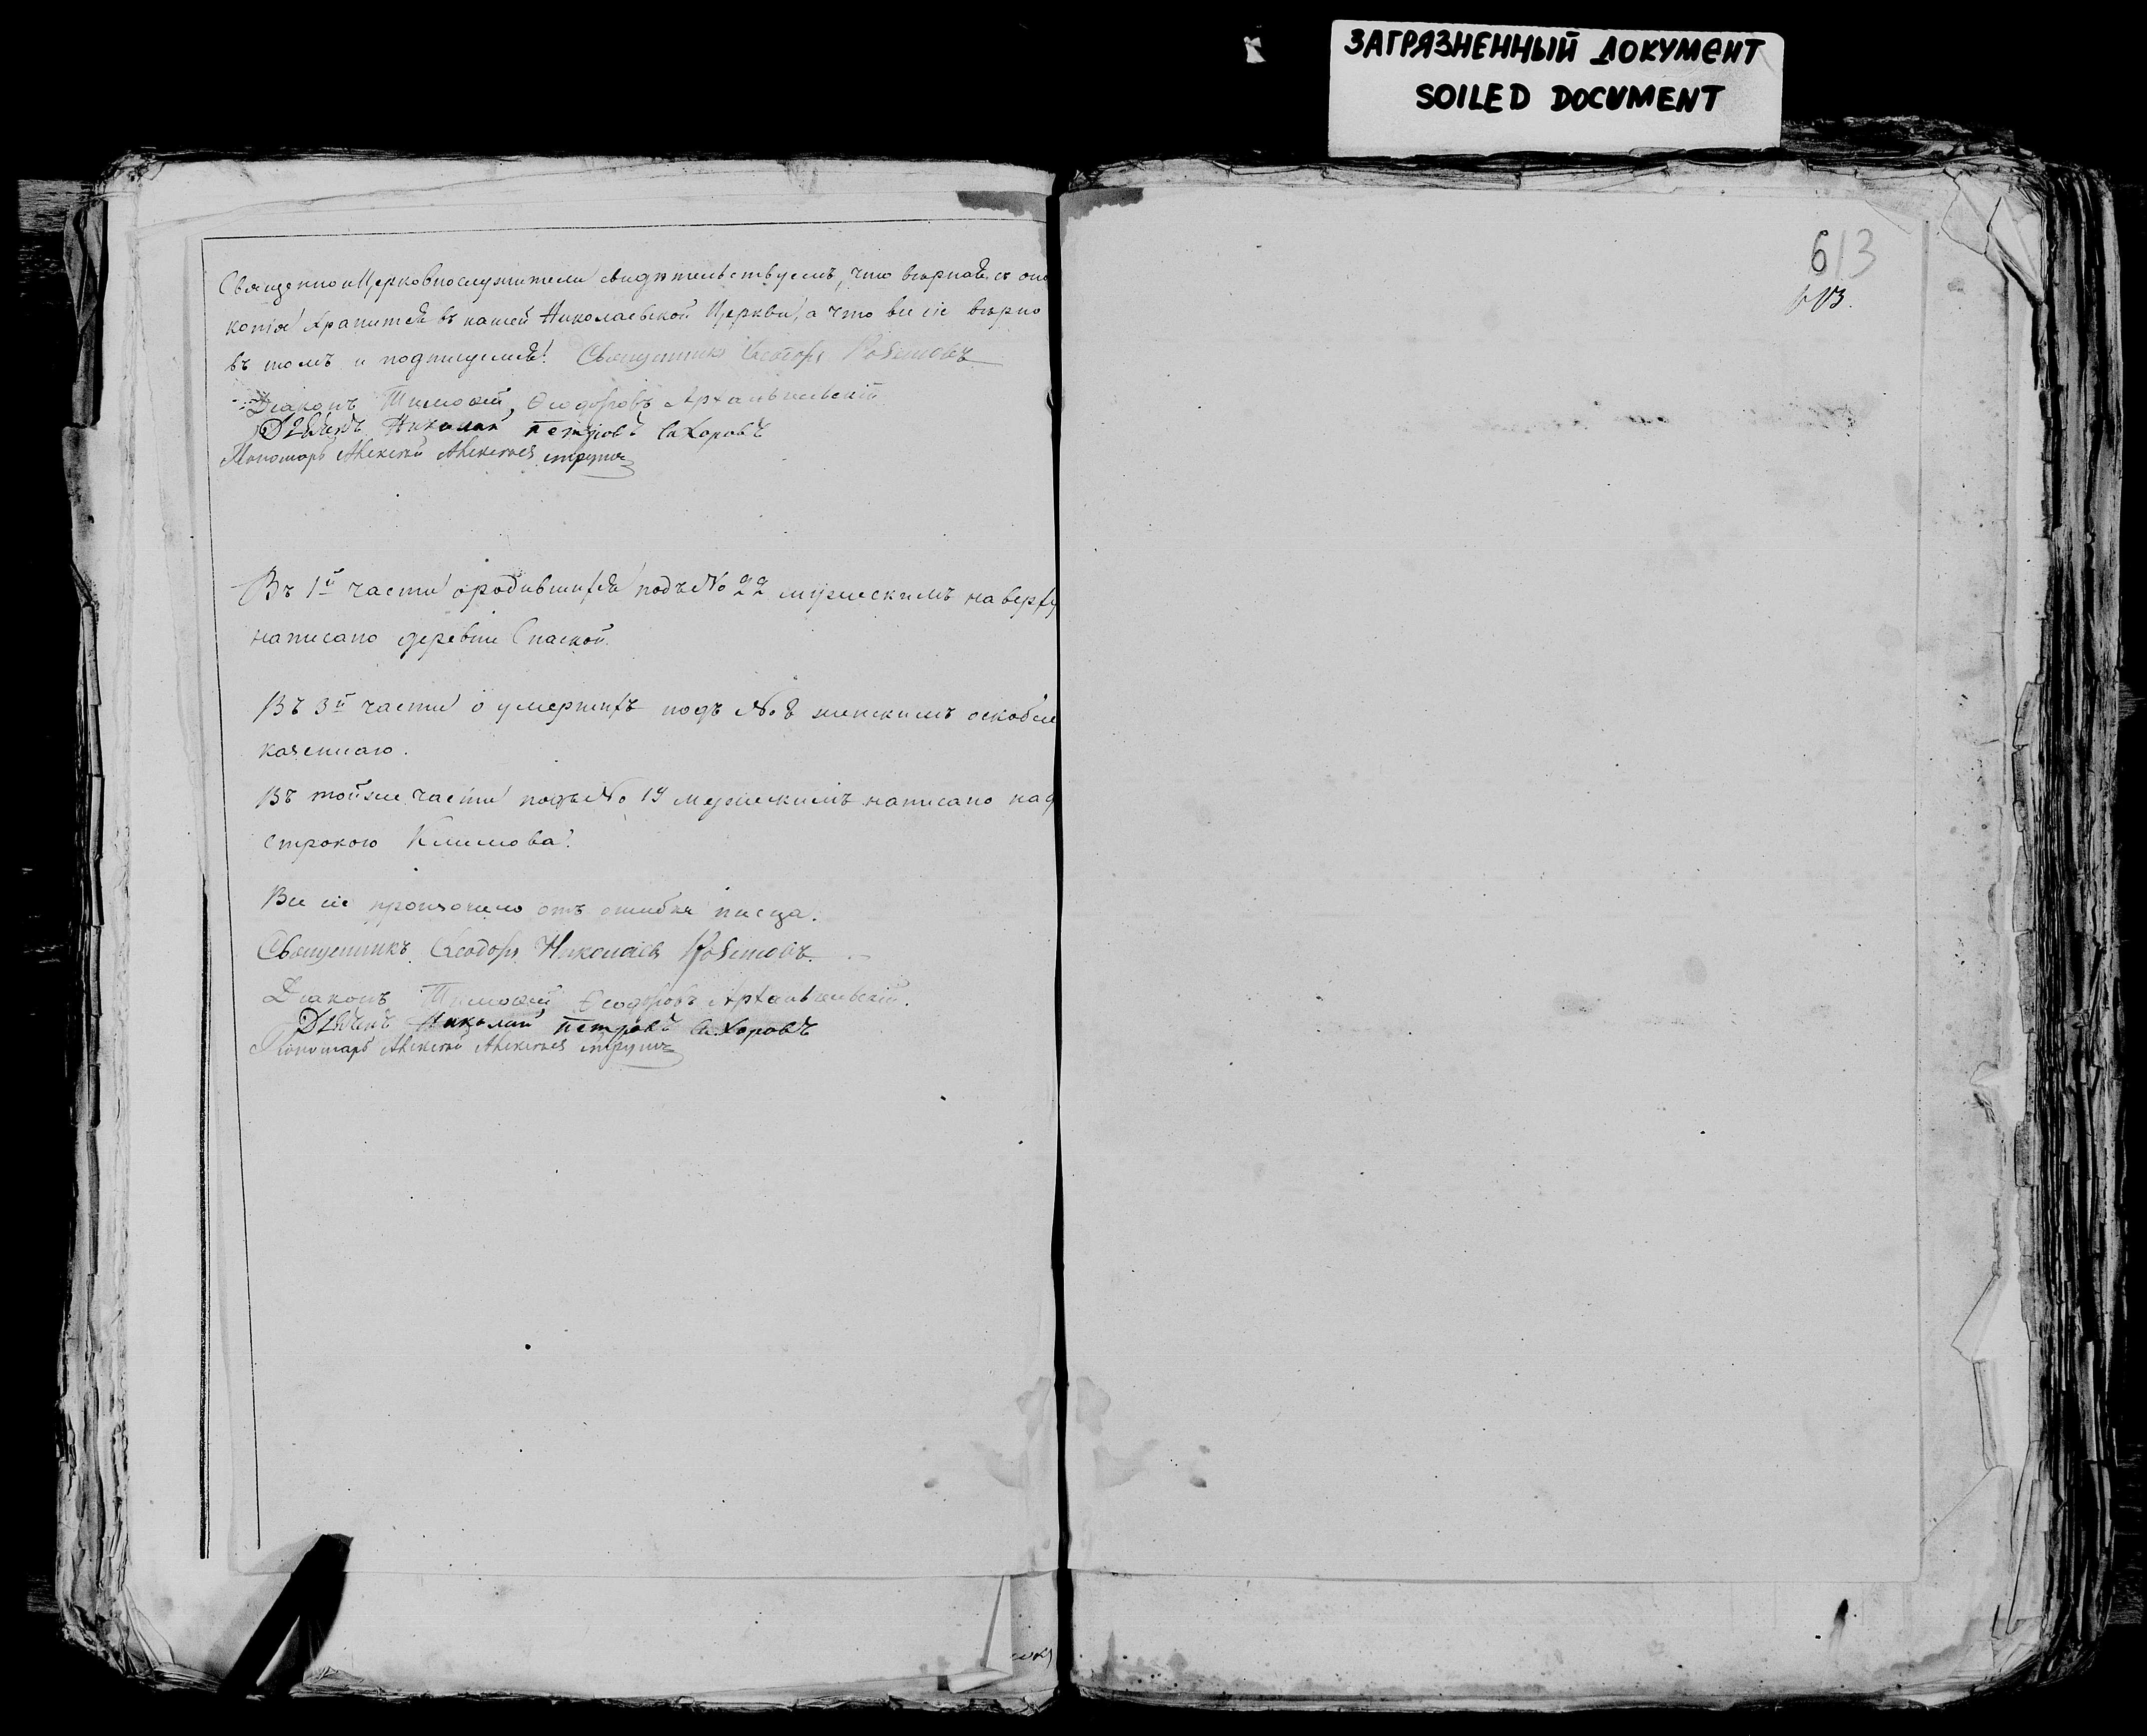 ЗАГРЯЗНЕННЫЙ ДОКУМЕНТ
SOILED DOCUMENT
613
613.
Священно и Церковнослужители свидѣтельствуемъ, что вѣрная съ
копія хранится въ нашей Николаевской Церкви, а что все сіе вѣрно
въ томъ и подписуемся. Священникъ Ѳеодоръ
Діаконъ Тимоѳей Ѳеодоровъ Архангельскій
Дьячекъ Николай Петровъ Сахоровъ
Пономарь Алексѣй Алексѣевъ
Въ 1й части о родившихся подъ № 22 мужескимъ на верху
написано деревни Спаской.
Въ 3й части о умершихъ подъ № женскимъ
казеннаго.
Въ тойже части подъ № 19 мужескимъ написано над
строкою Климова.
Все сіе произошло отъ ошибки писца.
Священникъ Ѳеодоръ Николаевъ
Діаконъ Тимоѳей Ѳеодоровъ Архангельскій.
Дьячекъ Николай Петровъ Сахоровъ
Пономарь Алексѣй Алексѣевъ